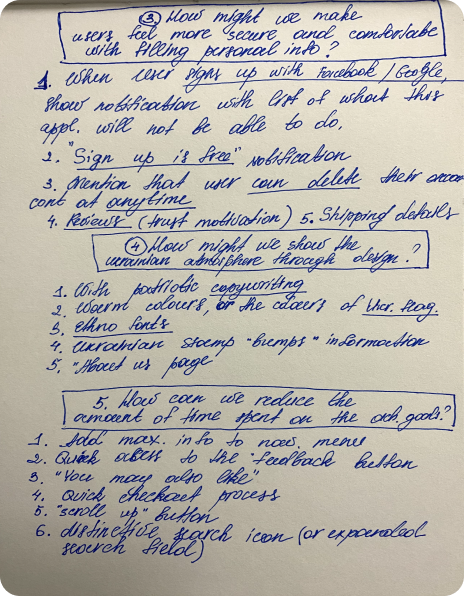 ③ How might we make
users feel more secure and comfortable
with filling personal info?
1. When user signs up with Facebook / Google,
show notification with list of what this
appl. will not be able to do.
2. "Sign up is free" notification
3. Mention that user can delete their accou-
cont at anytime
4. Reviews (trust motivation) 5. Shipping details
④ How might we show the
ukrainian atmosphere through design?
1. With patriotic copywriting
2. Warm colours, or the colours of Ukr. flag.
3. Ethno fonts
4. Ukrainian stamp "bumps" information
5. "About us page
5. How can we reduce the
amount of time spent on the goods?
1. Add max. info to nav. menu
2. Quick access to the feedback button
3. "You may also like"
4. Quick checkout process
5. "scroll up" button
6. distinctive search icon (or expanded
search field)